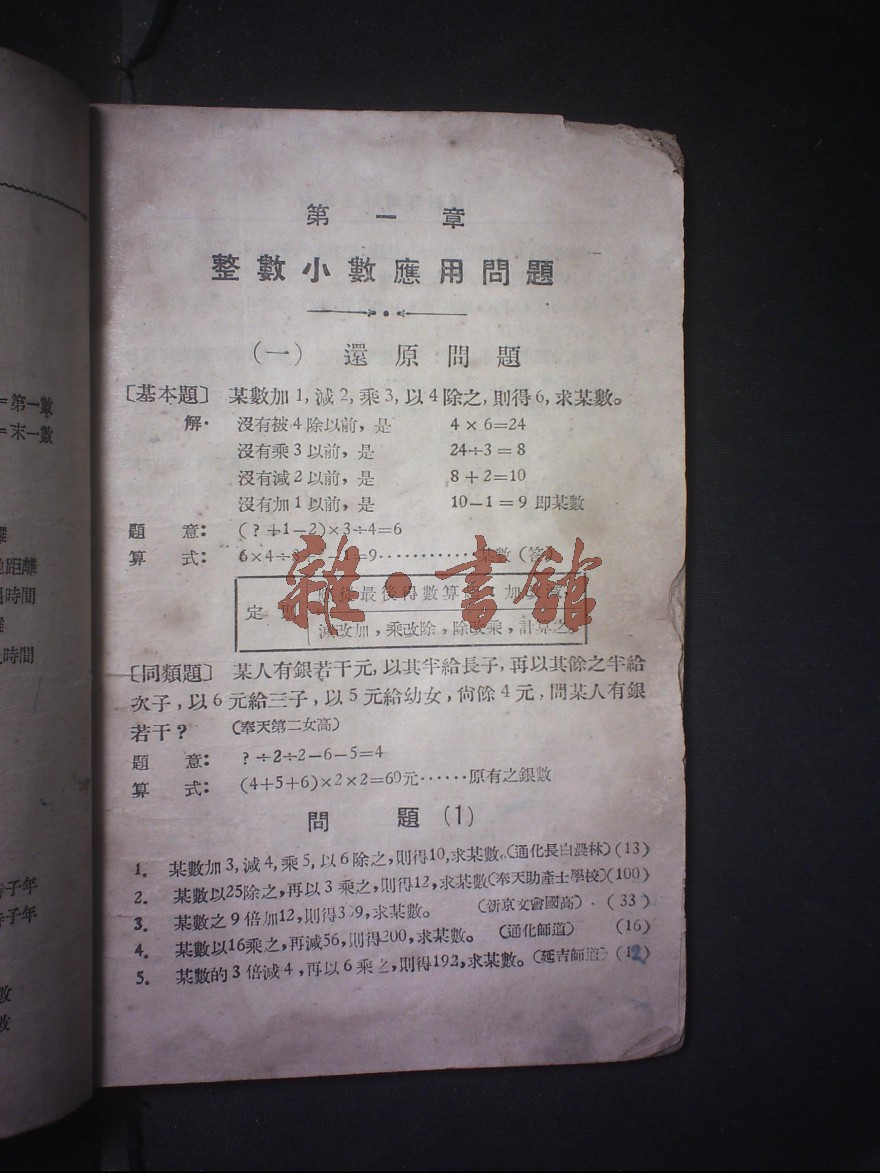 =第一數
=末一數
地距離
時間
時間
子年
子年
數
數
第一章
整數小數應用問題
(一) 還原問題
〔基本題〕 某數加1,減2,乘3,以4除之,則得6,求某數。
解· 沒有被4除以前,是 4×6=24
沒有乘3以前,是 24÷3=8
沒有減2以前,是 8+2=10
沒有加1以前,是 10-1=9 即某數
題 意: (?+1-2)×3÷4=6
算 式: 6×4÷ -1=9············某數(答)
定 從最後得數算 加
減改加,乘改除,除改乘,計算之。
〔同類題〕 某人有銀若干元,以其半給長子,再以其餘之半給
次子,以6元給三子,以5元給幼女,尙餘4元,問某人有銀
若干? (奉天第二女高)
題 意: ?÷2÷2-6-5=4
算 式: (4+5+6)×2×2=60元······原有之銀數
問 題 (1)
1. 某數加3,減4,乘5,以6除之,則得10,求某數。(通化長白農林)(13)
2. 某數以25除之,再以3乘之,則得12,求某數(奉天助產士學校)(100)
3. 某數之9倍加12,則得3 9,求某數。 (新京文會國高)·(33)
4. 某數以16乘之,再減56,則得200,求某數。 (通化師道) (16)
5. 某數的3倍減4,再以6乘之,則得192,求某數。(延吉師道)(12)
雜·書館